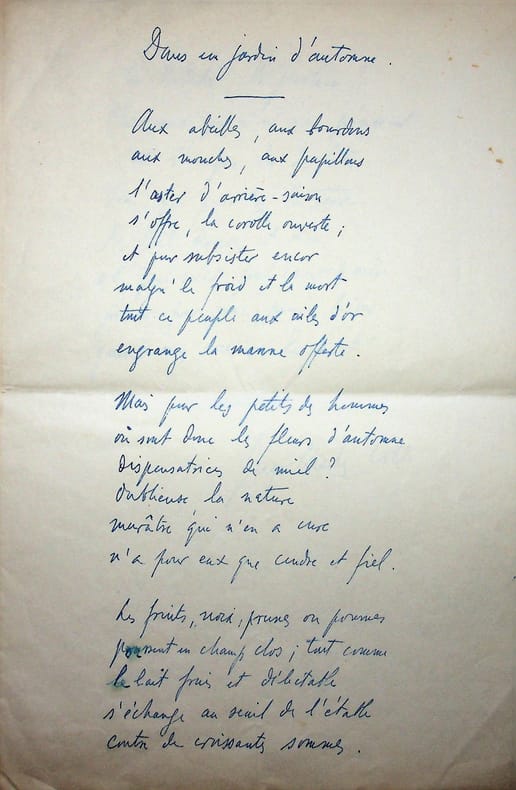 Dans un jardin d'automne.
Aux abeilles, aux bourdons
aux mouches, aux papillons
l'aster d'arrière-saison
s'offre, la corolle ouverte ;
et pour subsister encor
malgré le froid et la mort
tout ce peuple aux ailes d'or
engrange la manne offerte.
Mais pour les petits des hommes
où sont donc les fleurs d'automne
dispensatrices de miel ?
Oublieuse la nature
marâtre qui n'en a cure
n'a pour eux que cendre et fiel.
Les fruits, noix, prunes ou pommes
poussent en champ clos ; tout comme
le lait frais et délectable
s'échange au seuil de l'étable
contre de croissants sommes.